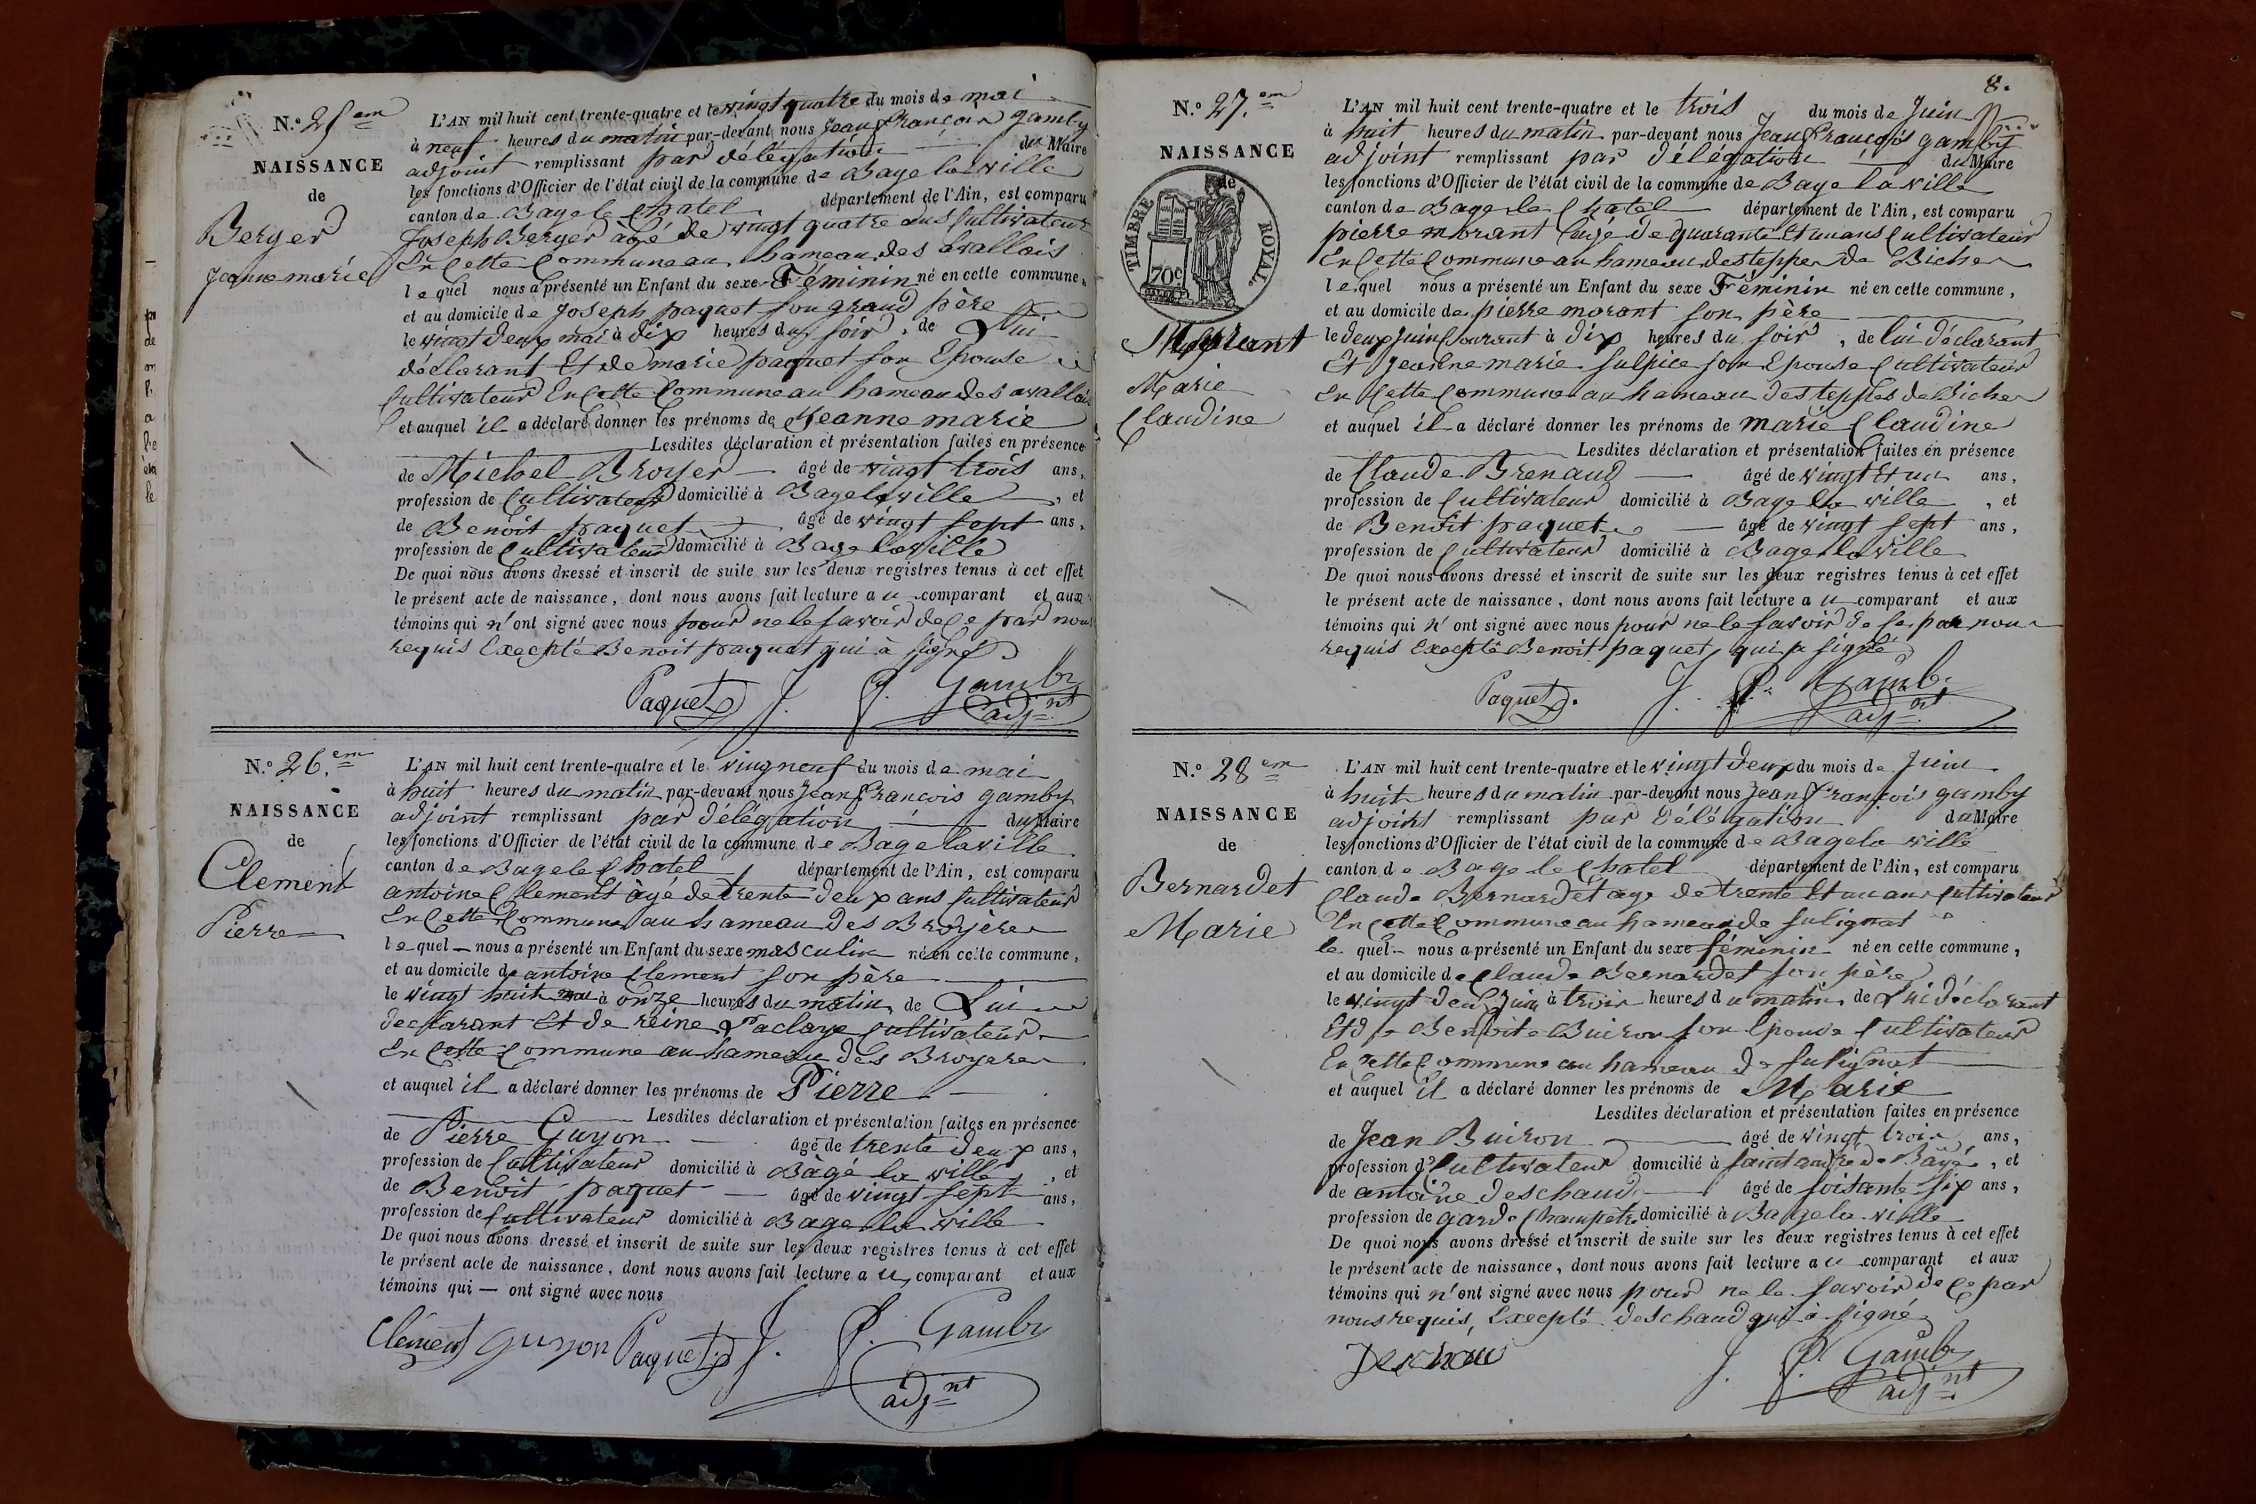 N.º 25 em
NAISSANCE
de
Berger
Jeanne marie
L'AN mil huit cent trente-quatre et le vingt quatre du mois de mai
à neuf heures du matin par-devant nous Jean françois gamby
adjoint remplissant par délégation du Maire
les fonctions d'Officier de l'état civil de la commune de Bage la ville
canton de Bage le Chatel département de l'Ain, est comparu
Joseph Berger âgé de vingt quatre ans Cultivateur
En Cette Commune au hameau des avallois
lequel nous a présenté un Enfant du sexe Féminin né en cette commune,
et au domicile de Joseph paquet son grand père
le vingt deux mai à dix heures du soir, de Lui
déclarant Et de marie paquet son Epouse
Cultivateur En Cette Commune au hameau des avallois
et auquel il a déclaré donner les prénoms de Jeanne marie
Lesdites déclaration et présentation faites en présence
de Michel Broyer âgé de vingt trois ans,
profession de Cultivateur domicilié à Bage la ville, et
de Benoit paquet âgé de vingt sept ans,
profession de Cultivateur domicilié à Bage la ville
De quoi nous avons dressé et inscrit de suite sur les deux registres tenus à cet effet
le présent acte de naissance, dont nous avons fait lecture au comparant et aux
témoins qui n'ont signé avec nous pour ne le savoir de Ce par nous
requis Excepté Benoit paquet qui à signé
Paquet J. f. Gamby
adj.nt
N.º 26. em
NAISSANCE
de
Clement
Pierre
L'AN mil huit cent trente-quatre et le vingneuf du mois de mai
à huit heures du matin par-devant nous Jean françois gamby
adjoint remplissant par délégation du Maire
les fonctions d'Officier de l'état civil de la commune de Bage la ville
canton de Bage le Chatel département de l'Ain, est comparu
antoine Clement âgé de trente deux ans Cultivateur
En Cette Commune au hameau des Broyere
lequel nous a présenté un Enfant du sexe masculin né en cette commune,
et au domicile de antoine Clement son père
le vingt huit mai à onze heures du matin de Lui
declarant Et de reine Paclaye Cultivateur
En Cette Commune au hameau des Broyere
et auquel il a déclaré donner les prénoms de Pierre
Lesdites déclaration et présentation faites en présence
de Pierre Guyon âgé de trente deux ans,
profession de Cultivateur domicilié à Bagé la ville, et
de Benoit paquet âgé de vingt sept ans,
profession de Cultivateur domicilié à Bage la ville
De quoi nous avons dressé et inscrit de suite sur les deux registres tenus à cet effet
le présent acte de naissance, dont nous avons fait lecture au comparant et aux
témoins qui — ont signé avec nous
Clément guyon Paquet J. f. Gamby
adj.nt
8.
N.º 27. em
NAISSANCE
de
TIMBRE ROYAL.
70c
Morant
Marie
Claudine
L'AN mil huit cent trente-quatre et le trois du mois de Juin
à huit heures du matin par-devant nous Jean françois gamby
adjoint remplissant par délégation du Maire
les fonctions d'Officier de l'état civil de la commune de Bage la ville
canton de Bage le Chatel département de l'Ain, est comparu
pierre morant âgé de quarante Et un ans Cultivateur
En Cette Commune au hameau des teppes de Biche
lequel nous a présenté un Enfant du sexe Féminin né en cette commune,
et au domicile de pierre morant son père
le deux Juin Courant à dix heures du soir, de lui déclarant
Et Jeanne marie sulpice son Epouse Cultivateur
En Cette Commune au hameau des teppes de Biche
et auquel il a déclaré donner les prénoms de marie Claudine
Lesdites déclaration et présentation faites en présence
de Claude Brenaud âgé de vingt Et un ans,
profession de Cultivateur domicilié à Bage la ville, et
de Benoit paquet âgé de vingt sept ans,
profession de Cultivateur domicilié à Bage la ville
De quoi nous avons dressé et inscrit de suite sur les deux registres tenus à cet effet
le présent acte de naissance, dont nous avons fait lecture au comparant et aux
témoins qui n'ont signé avec nous pour ne le savoir de Ce par nous
requis Excepté Benoit paquet qui a signé
Paquet. J. f. Gamby
adj.nt
N.º 28 em
NAISSANCE
de
Bernardet
Marie
L'AN mil huit cent trente-quatre et le vingt deux du mois de Juin
à huit heures du matin par-devant nous Jean françois gamby
adjoint remplissant par délégation du Maire
les fonctions d'Officier de l'état civil de la commune de Bage la ville
canton de Bage le Chatel département de l'Ain, est comparu
Claude Bernardet age de trente Et un ans Cultivateur
En Cette Commune au hameau de sulignat
le quel nous a présenté un Enfant du sexe féminin né en cette commune,
et au domicile de Claude Bernardet son père
le vingt deux Juin à trois heures du matin de Lui déclarant
Et de Benoite Buiron son Epouse Cultivateur
En Cette Commune au hameau de sulignat
et auquel il a déclaré donner les prénoms de Marie
Lesdites déclaration et présentation faites en présence
de Jean Buiron âgé de vingt trois ans,
profession de Cultivateur domicilié à saint andré de Bagé, et
de antoine deschaud âgé de soisante six ans,
profession de garde Champetre domicilié à Bage la ville
De quoi nous avons dressé et inscrit de suite sur les deux registres tenus à cet effet
le présent acte de naissance, dont nous avons fait lecture au comparant et aux
témoins qui n'ont signé avec nous pour ne le savoir de Ce par
nous requis, Excepté deschaud qui à signé
J. f. Gamby
adj.nt